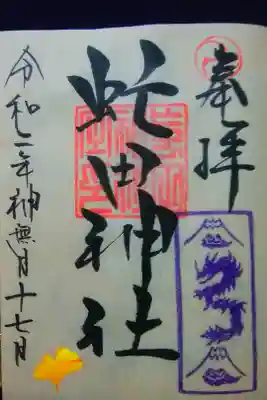 奉拝
虻田神社
令和二年神無月十七日